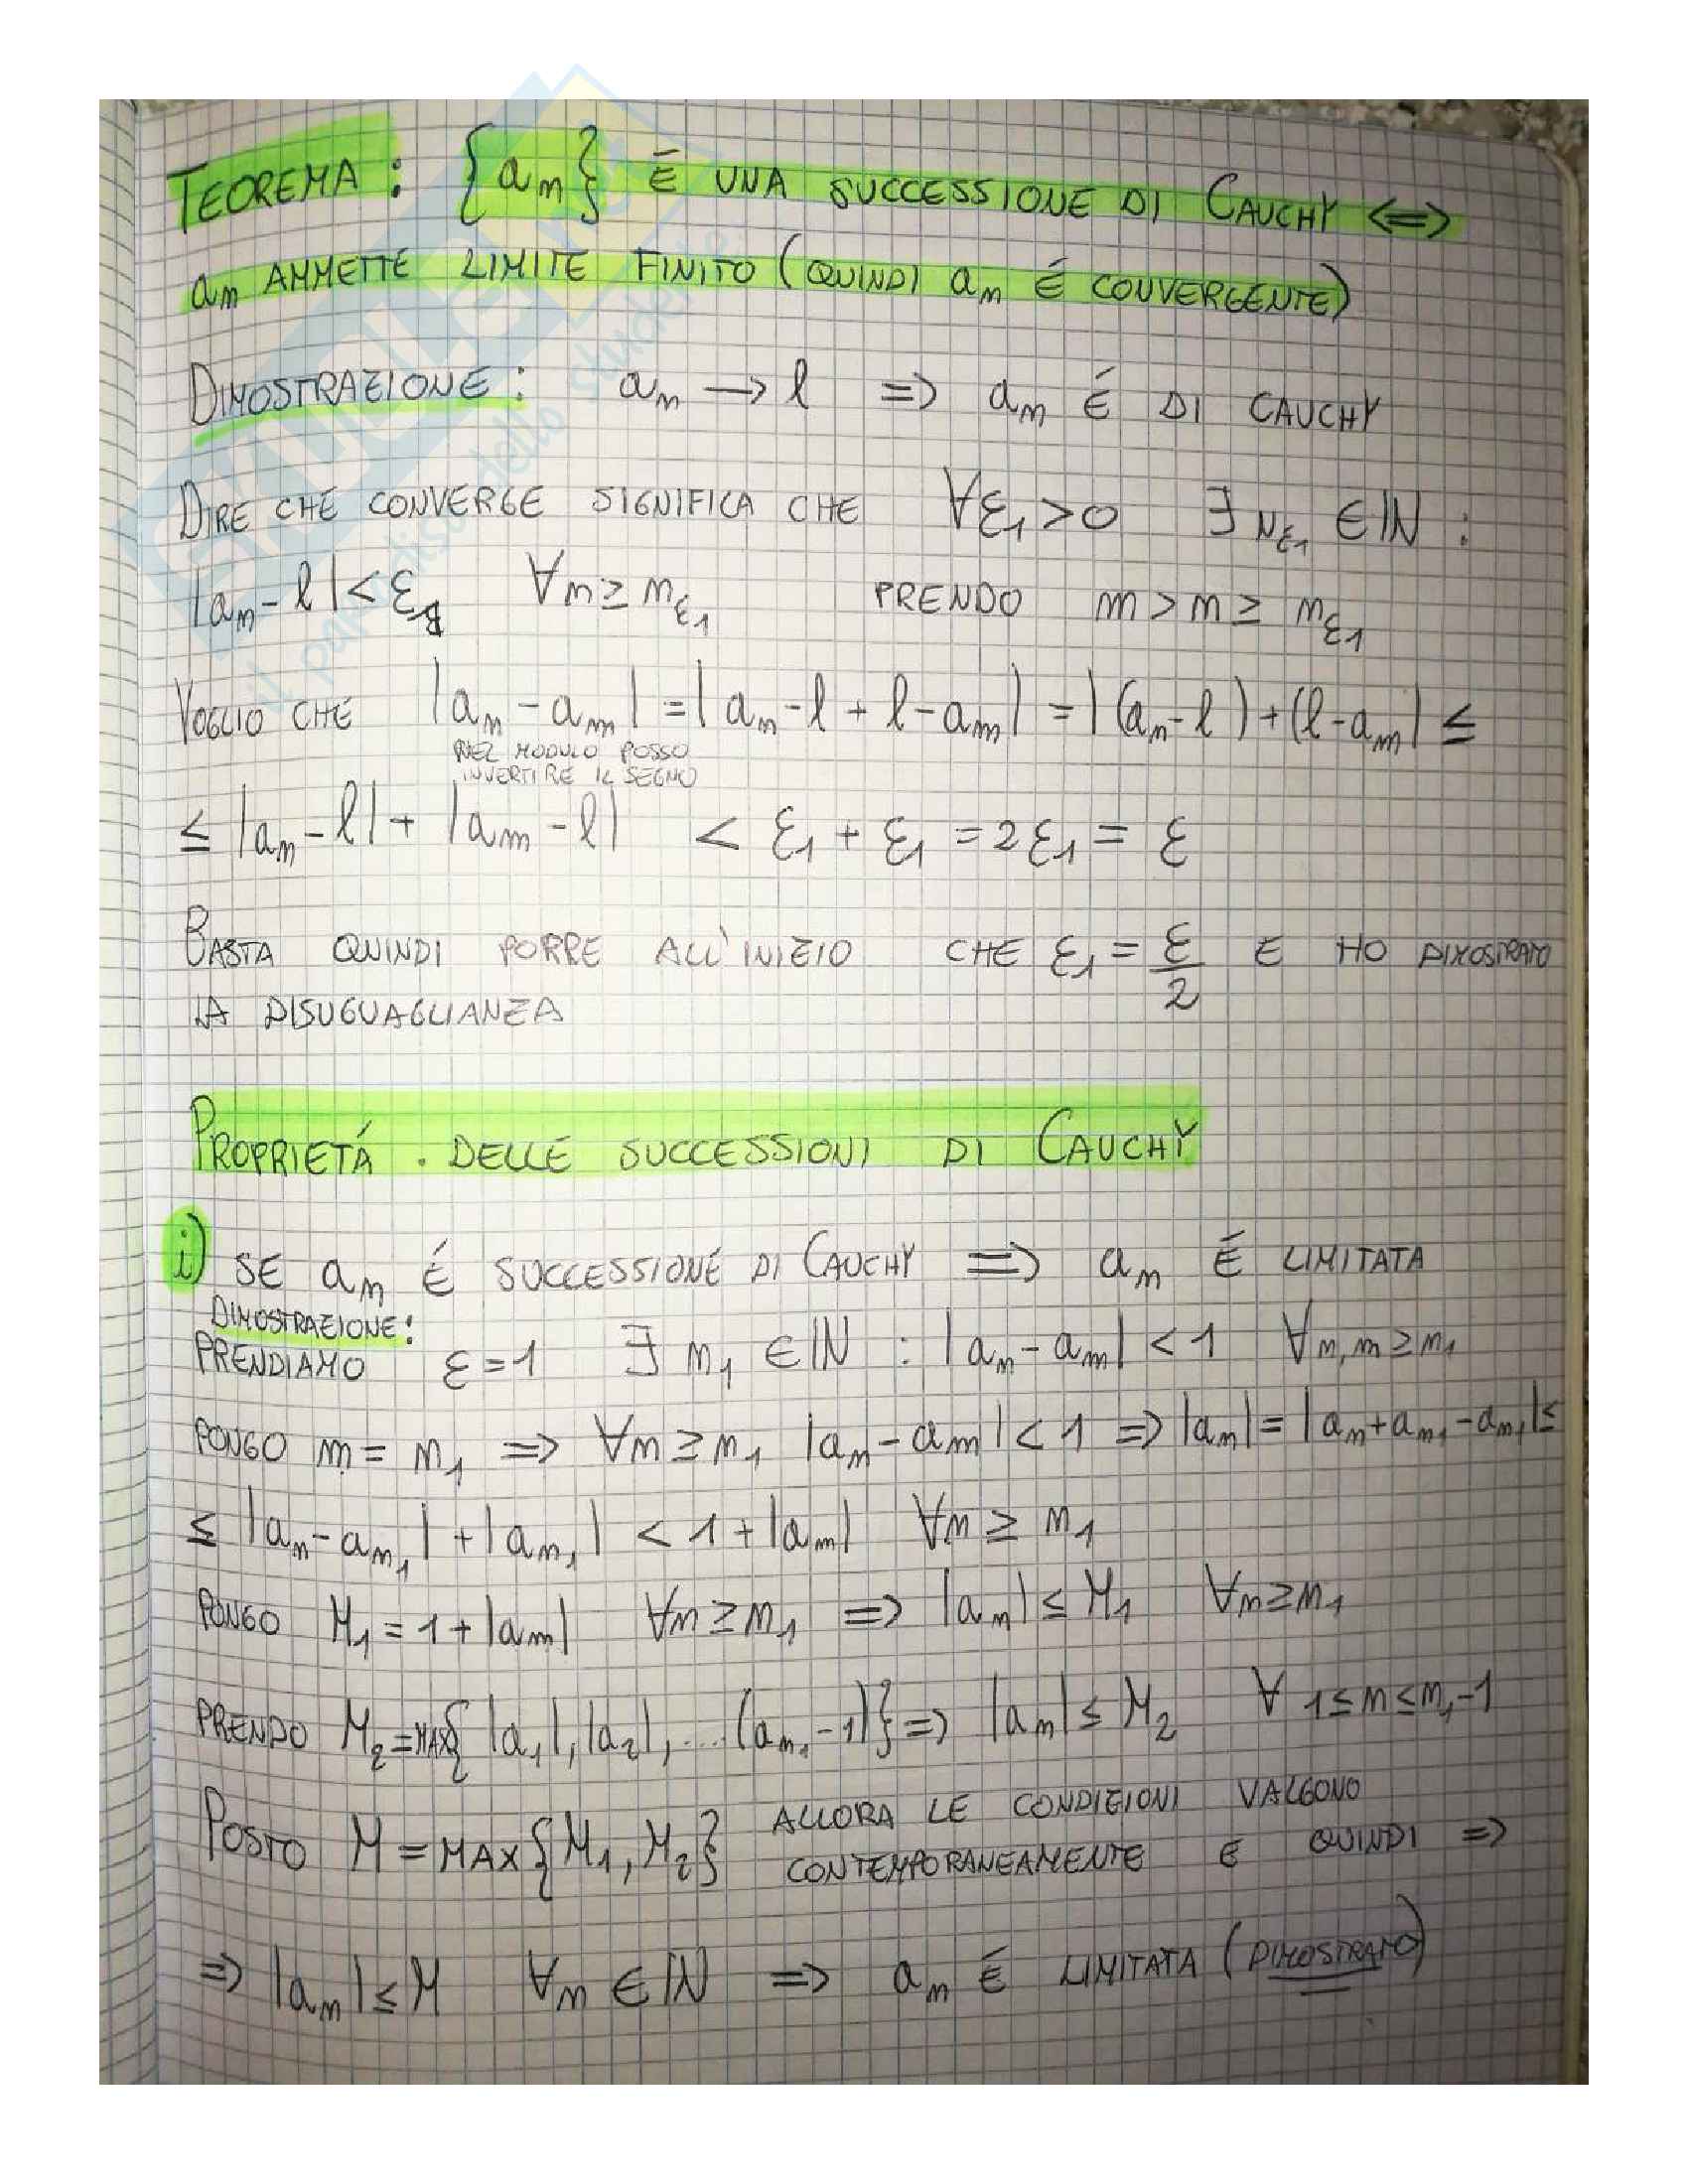 TEOREMA: {aₙ} É UNA SUCCESSIONE DI CAUCHY <=>
aₙ AMMETTE LIMITE FINITO (QUINDI aₙ É CONVERGENTE)
DIMOSTRAZIONE: aₙ → l => aₙ É DI CAUCHY
DIRE CHE CONVERGE SIGNIFICA CHE ∀ε₁>0 ∃ n_ε₁ ∈ ℕ :
|aₙ - l| < ε₁ ∀n ≥ n_ε₁ PRENDO m > n ≥ n_ε₁
VOGLIO CHE |aₙ - aₘ| = |aₙ - l + l - aₘ| = |(aₙ - l) + (l - aₘ| ≤
NEL MODULO POSSO
INVERTIRE IL SEGNO
≤ |aₙ - l| + |aₘ - l| < ε₁ + ε₁ = 2ε₁ = ε
BASTA QUINDI PORRE ALL'INIZIO CHE ε₁ = ε/2 E HO DIMOSTRATO
LA DISUGUAGLIANZA
PROPRIETÁ DELLE SUCCESSIONI DI CAUCHY
i) SE aₙ É SUCCESSIONE DI CAUCHY => aₙ É LIMITATA
DIMOSTRAZIONE:
PRENDIAMO ε = 1 ∃ n₁ ∈ ℕ : |aₙ - aₘ| < 1 ∀n, m ≥ n₁
PONGO m = n₁ => ∀n ≥ n₁ |aₙ - aₘ| < 1 => |aₙ| = |aₙ + a_n₁ - a_n₁| ≤
≤ |aₙ - a_n₁| + |a_n₁| < 1 + |aₘ| ∀n ≥ n₁
PONGO M₁ = 1 + |aₘ| ∀n ≥ n₁ => |aₙ| ≤ M₁ ∀n ≥ n₁
PRENDO M₂ = MAX{ |a₁|, |a₂|, .... (a_n₁ - 1)} => |aₙ| ≤ M₂ ∀ 1 ≤ n ≤ n₁ - 1
POSTO M = MAX{M₁, M₂} ALLORA LE CONDIZIONI VALGONO
CONTEMPORANEAMENTE E QUINDI =>
=> |aₙ| ≤ M ∀n ∈ ℕ => aₙ É LIMITATA (DIMOSTRATO)